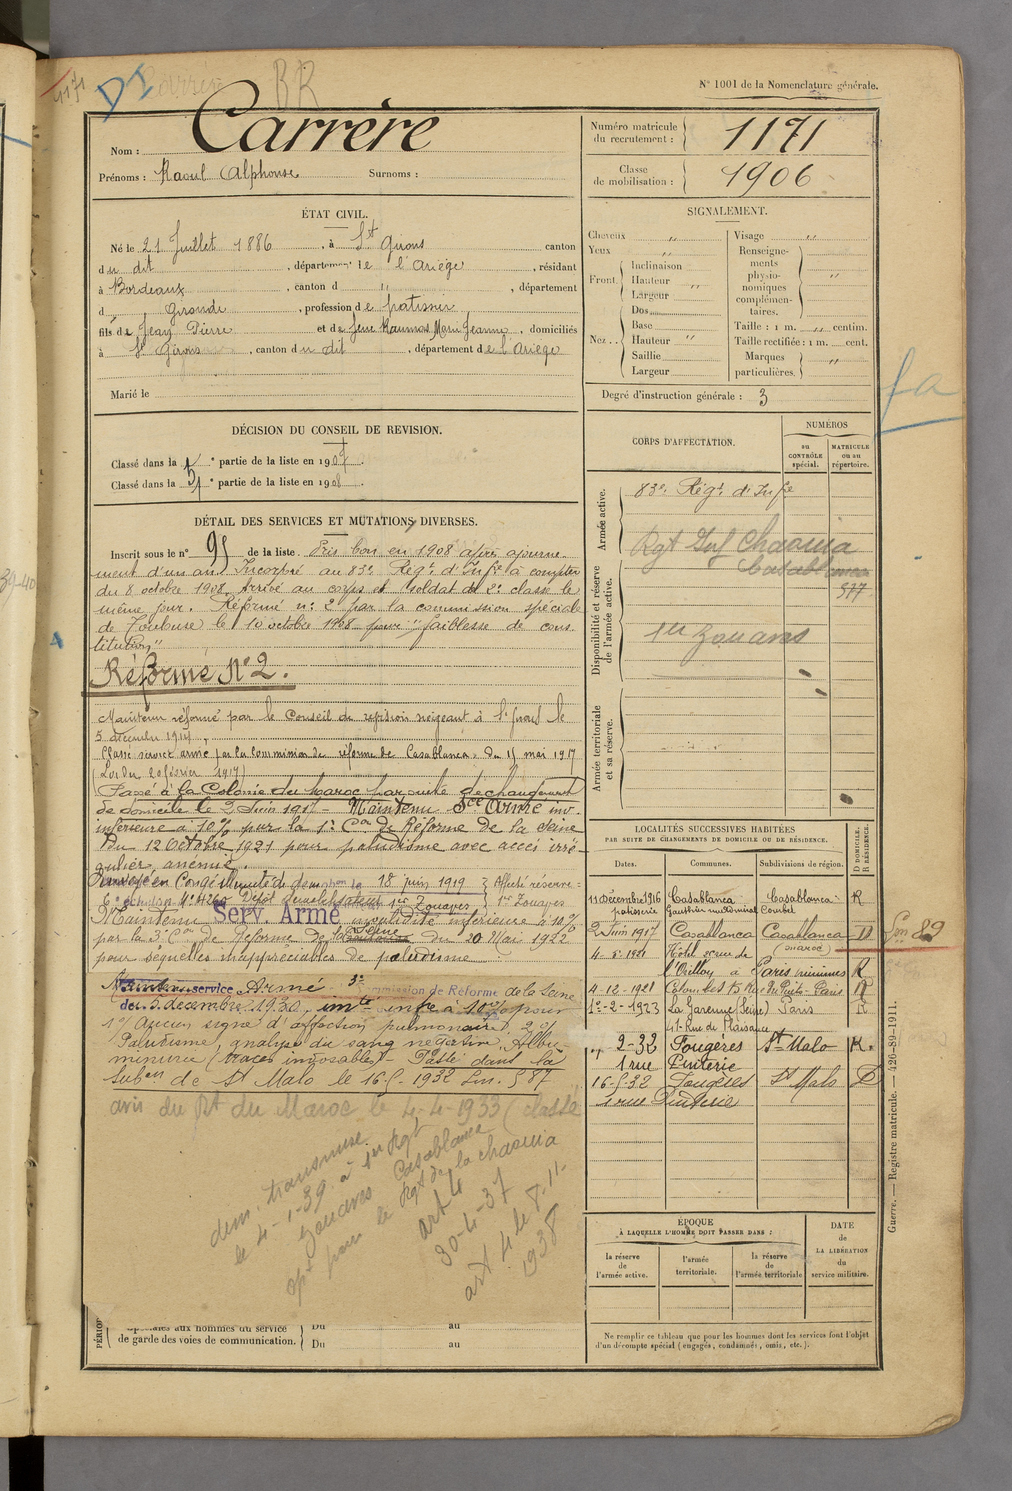 1171
BR
N° 1001 de la Nomenclature générale.
Nom : Carrère
Prénoms : Raoul Alphonse Surnoms :
Numéro matricule du recrutement : 1171
Classe de mobilisation : 1906
ÉTAT CIVIL.
Né le 21 Juillet 1886, à St Girons canton
du dit, département de l'Ariège, résidant
à Bordeaux, canton d " , département
d Gironde, profession de patissier
fils de Jean Pierre et de Marie Jeanne, domiciliés
à St Girons, canton du dit, département de l'Ariège
Marié le
SIGNALEMENT.
Cheveux "
Yeux "
Front. Inclinaison
Hauteur "
Largeur
Nez.. Dos
Base
Hauteur "
Saillie
Largeur
Visage "
Renseignements physionomiques complémentaires. "
Taille : 1 m. " centim.
Taille rectifiée : 1 m. cent.
Marques particulières. "
Degré d'instruction générale : 3
DÉCISION DU CONSEIL DE REVISION.
Classé dans la 5e partie de la liste en 1907.
Classé dans la e partie de la liste en 1908.
DÉTAIL DES SERVICES ET MUTATIONS DIVERSES.
Inscrit sous le n° 95 de la liste. Pris bon en 1908 après ajourne-
ment d'un an. Incorporé au 83e Régt d'Infie à compter
du 8 octobre 1908. Arrivé au corps et soldat de 2e classe le
même jour. Réformé n: 2 par la commission spéciale
de Toulouse le 10 octobre 1908 pour "faiblesse de cons-
titution"
Réformé N° 2.
Maintenu réformé par le Conseil de révision siégeant à St Girons le
5 décembre 1914.
Classé service armé par la Commission de réforme de Casablanca, du 15 mai 1917
(Loi du 20 février 1917)
Passé à la Colonie du Maroc par suite de changement
de domicile le 2 Juin 1917 - Maintenu Sce Armé inv.
inférieure à 10% par la 1e Con de Réforme de la Seine
du 12 Octobre 1921 pour paludisme avec accès irré-
gulier, anémié.
Renvoyé en Congé illimité de démon le 18 juin 1919 } Affecté réserve :
6e échelon Dépôt démobilisateur 1er Zouaves } 1er Zouaves
Maintenu Serv. Armé invalidité inférieure à 10%
par la 3e Con de Réforme de la Seine du 20 Mai 1922
pour séquelles inappréciables de paludisme
Maintenu service Armé 3e Commission de Réforme de la Seine
du 5 décembre 1930, imté infre à 10% pour
1°/ Aucun signe d'affection pulmonaire, 2°/
Paludisme, analyse du sang négative. Albu-
minurie (traces indosables) - Passé dans la
Subon de St Malo le 16-5-1932 Lm. 587
avis du Rt du Maroc le 4-4-1933 (classe
dem. transmise
le 4-1-39 à 1er Rgt
Zouaves Casablanca
pour le Rgt de la Chaouia
art 4
30-4-37
art 4 le 8-11-
1938
CORPS D'AFFECTATION.
NUMÉROS
au CONTRÔLE spécial.
MATRICULE ou au répertoire.
Armée active.
83e Régt d'Infie
Rgt Inf Chaouia
Casablanca
577
Disponibilité et réserve de l'armée active.
1er Zouaves
Armée territoriale et sa réserve.
LOCALITÉS SUCCESSIVES HABITÉES
PAR SUITE DE CHANGEMENTS DE DOMICILE OU DE RÉSIDENCE.
Dates. Communes. Subdivisions de région. D DOMICILE. R RÉSIDENCE.
11 décembre 1916 Casablanca Casablanca R
patisserie Combel
2 Juin 1917 Casablanca Casablanca D
(Maroc)
4-5-1921 Hôtel
à Paris R
4-12-1921 Colombes 15 Rue du Puits Paris R
1e-2-1923 La Garenne (Seine) Paris R
41 Rue de Plaisance
2-32 Fougères St Malo R.
1 rue Pinterie
16-5-32 Fougères St Malo D
1 rue Pinterie
fa
Lm 89
ÉPOQUE
À LAQUELLE L'HOMME DOIT PASSER DANS :
la réserve de l'armée active.
l'armée territoriale.
la réserve de l'armée territoriale
DATE de LA LIBÉRATION du service militaire.
Ne remplir ce tableau que pour les hommes dont les services font l'objet
d'un décompte spécial (engagés, condamnés, omis, etc.).
spéciales aux hommes du service
de garde des voies de communication.
Du au
Du au
Guerre. — Registre matricule. — 426-89-1911.